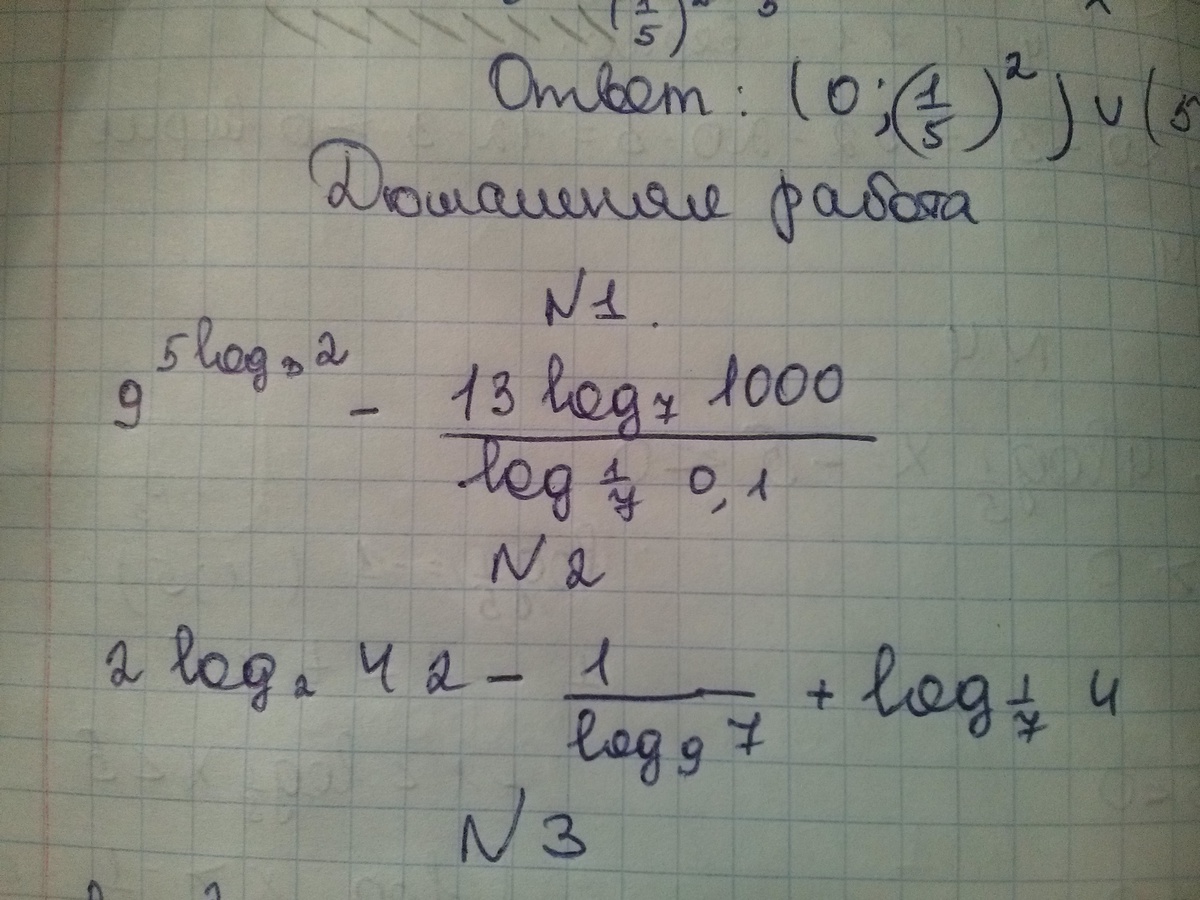 (1/5)² 5
Ответ: (0; (1/5)²) ∪ (5
Домашняя работа
N1.
9^(5log₃2) - (13 log₇ 1000)/(log_(1/7) 0,1)
N2
2 log₂ 42 - 1/(log₉ 7) + log_(1/7) 4
N3